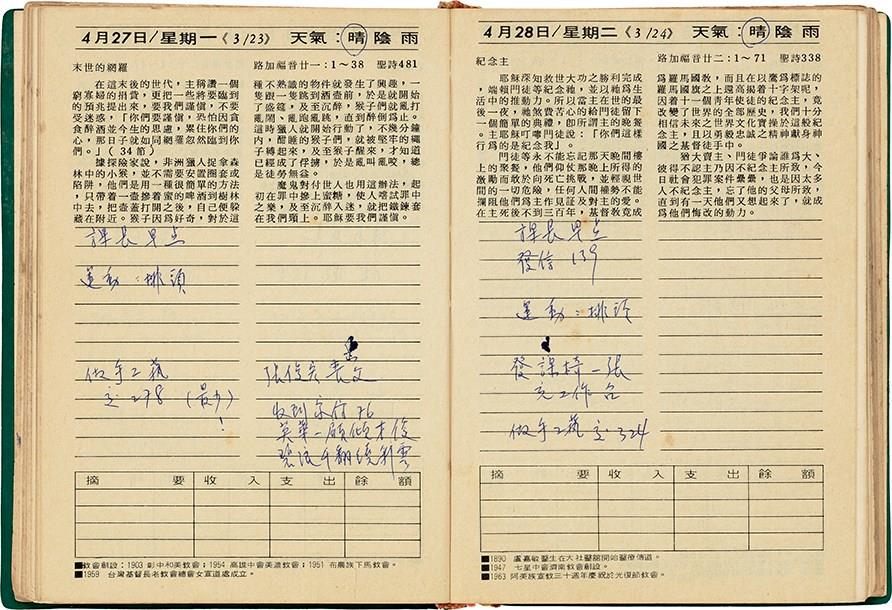 4月27日/星期一《3/23》 天氣:晴 陰 雨
末世的網羅 路加福音廿一:1~38 聖詩481
在這末後的世代,主稱讚一個
窮寡婦的捐獻,更把一些將要臨到
的預兆提出來,要我們謹慎,不要
受迷惑,「你們要謹慎,恐怕因貪
食醉酒並今生的思慮,累住你們的
心,那日子就如同網羅忽然臨到你
們。」(34節)
據探險家說,非洲獵人捉拿森
林中的小猴,並不需要安置圈套或
陷阱,他們是用一種很簡單的方法
,只帶着一壺摻着蜜的啤酒到樹林
中去,把壺蓋打開之後,自己便躲
藏在附近。猴子因為好奇,對於這
種不熟識的物件就發生了興趣,一
隻跟一隻跳到酒壺前,於是就開始
了盛筵,及至沉醉,猴子們就亂打
亂鬧、亂跑亂吵,直到醉倒爲止。
這時獵人就開始行動了,不幾分鐘
內,酣睡的猴子們,就被堅牢的繩
子縛起來,及至猴子醒來時,才知道
已經成了俘擄,於是亂叫亂咬,總
是徒勞無益。
魔鬼對付世人也用這辦法,起
初在罪中摻上蜜糖,使人嚐試罪中
之樂,及至沉醉入迷,就把鐵鍊套
在我們頸上。耶穌要我們謹慎。
課長早点
運動:排頭
做手工藝
交278(最少)
!
張俊宏 袁文
收到家信76
英華一顧傾才俊
碧浪千翻繞彩雲
摘要 收入 支出 餘額
■教會創設:1903 彰中和美教會;1954 高雄中會美濃教會;1951 布農族下馬教會。
■1959 台灣基督長老教會總會女宣道處成立。
4月28日/星期二《3/24》 天氣:晴 陰 雨
紀念主 路加福音廿二:1~71 聖詩338
耶穌深知救世大功之勝利完成
,端賴門徒等紀念祂,並以祂爲生
活中的推動力。所以當主在世的最
後一夜,祂煞費苦心的給門徒留下
一個簡單的典禮,即所謂主的晚餐
。主耶穌叮嚀門徒說:「你們這樣
行爲的是紀念我」。
門徒等永不能忘記那天晚間樓
上的聚餐,他們仰仗那晚上所得的
激動而敢於向死亡挑戰,並輕視世
間的一切危險,任何人間權勢不能
攔阻他們爲主作見証及對主的愛。
在主死後不到三百年,基督敎竟成
爲羅馬國敎,而且在以鷹爲標誌的
羅馬國旗之上還高揚着十字架呢,
因着十一個青年使徒的紀念主,竟
改變了世界的全部歷史,我們十分
相信未來之世界文化當決於這般紀
念主,且以勇毅忠誠之精神獻身神
國之基督徒手中。
猶大賣主、門徒爭論誰爲大、
彼得不認主乃因不紀念主所致,今
日社會犯罪案件纍纍,也是因太多
人不紀念主,忘了他的父母所致,
直到有一天他們又想起來了,就成
為他們悔改的動力。
課長早点
發信139
運動:排頭
發課椅一張
充工作台
做手工藝 交324
摘要 收入 支出 餘額
■1890 盧嘉敏醫生在大社醫館開始醫療傳道。
■1947 七星中會濟南教會創設。
■1963 阿美族宣教三十週年慶祝於光復節教會。